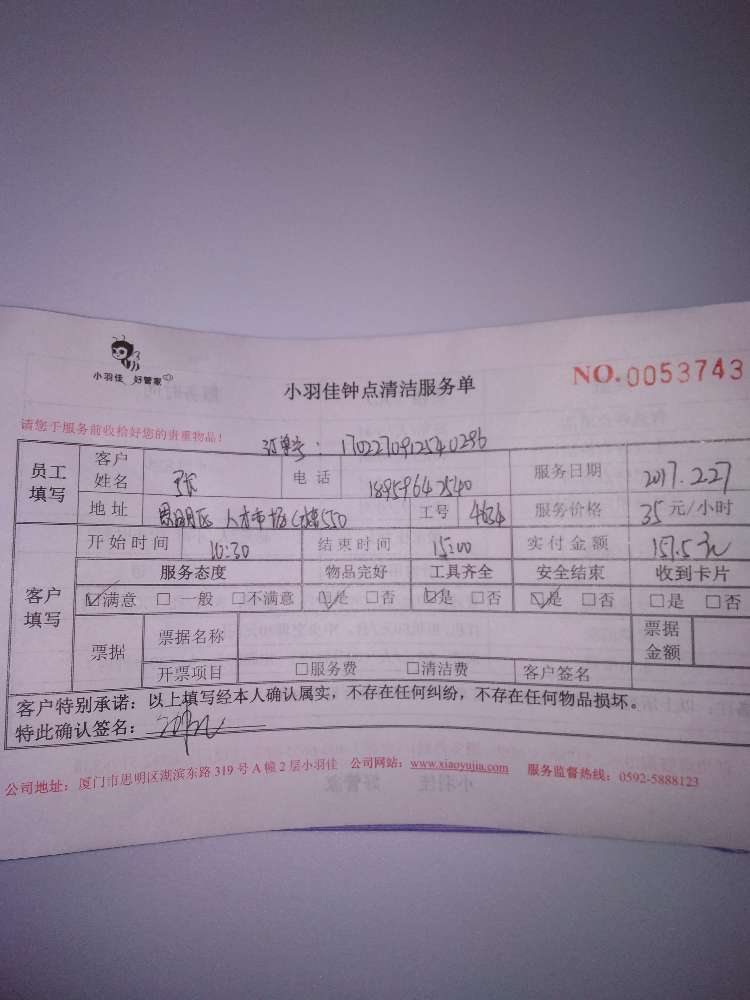 小羽佳 好管家
小羽佳钟点清洁服务单
NO.0053743
请您于服务前收拾好您的贵重物品！
订单号：1702270912540296
员工填写 客户姓名 张 电话 18959642540 服务日期 2017.2.27
地址 思明区 人才市场 550 工号 4634 服务价格 35元/小时
客户填写 开始时间 10:30 结束时间 15:00 实付金额 157.5元
服务态度 物品完好 工具齐全 安全结束 收到卡片
☑满意 □一般 □不满意 ☑是 □否 ☑是 □否 ☑是 □否 □是 □否
票据 票据名称 票据金额
开票项目 □服务费 □清洁费 客户签名
客户特别承诺：以上填写经本人确认属实，不存在任何纠纷，不存在任何物品损坏。
特此确认签名：
公司地址：厦门市思明区湖滨东路 319 号 A 幢 2 层小羽佳 公司网站：www.xiaoyujia.com 服务监督热线：0592-5888123